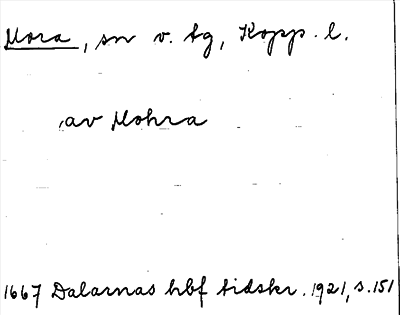 Mora, sn v. tg, Kopp. l.
av Mohra
1667 Dalarnas hbf tidskr. 1921, s. 151